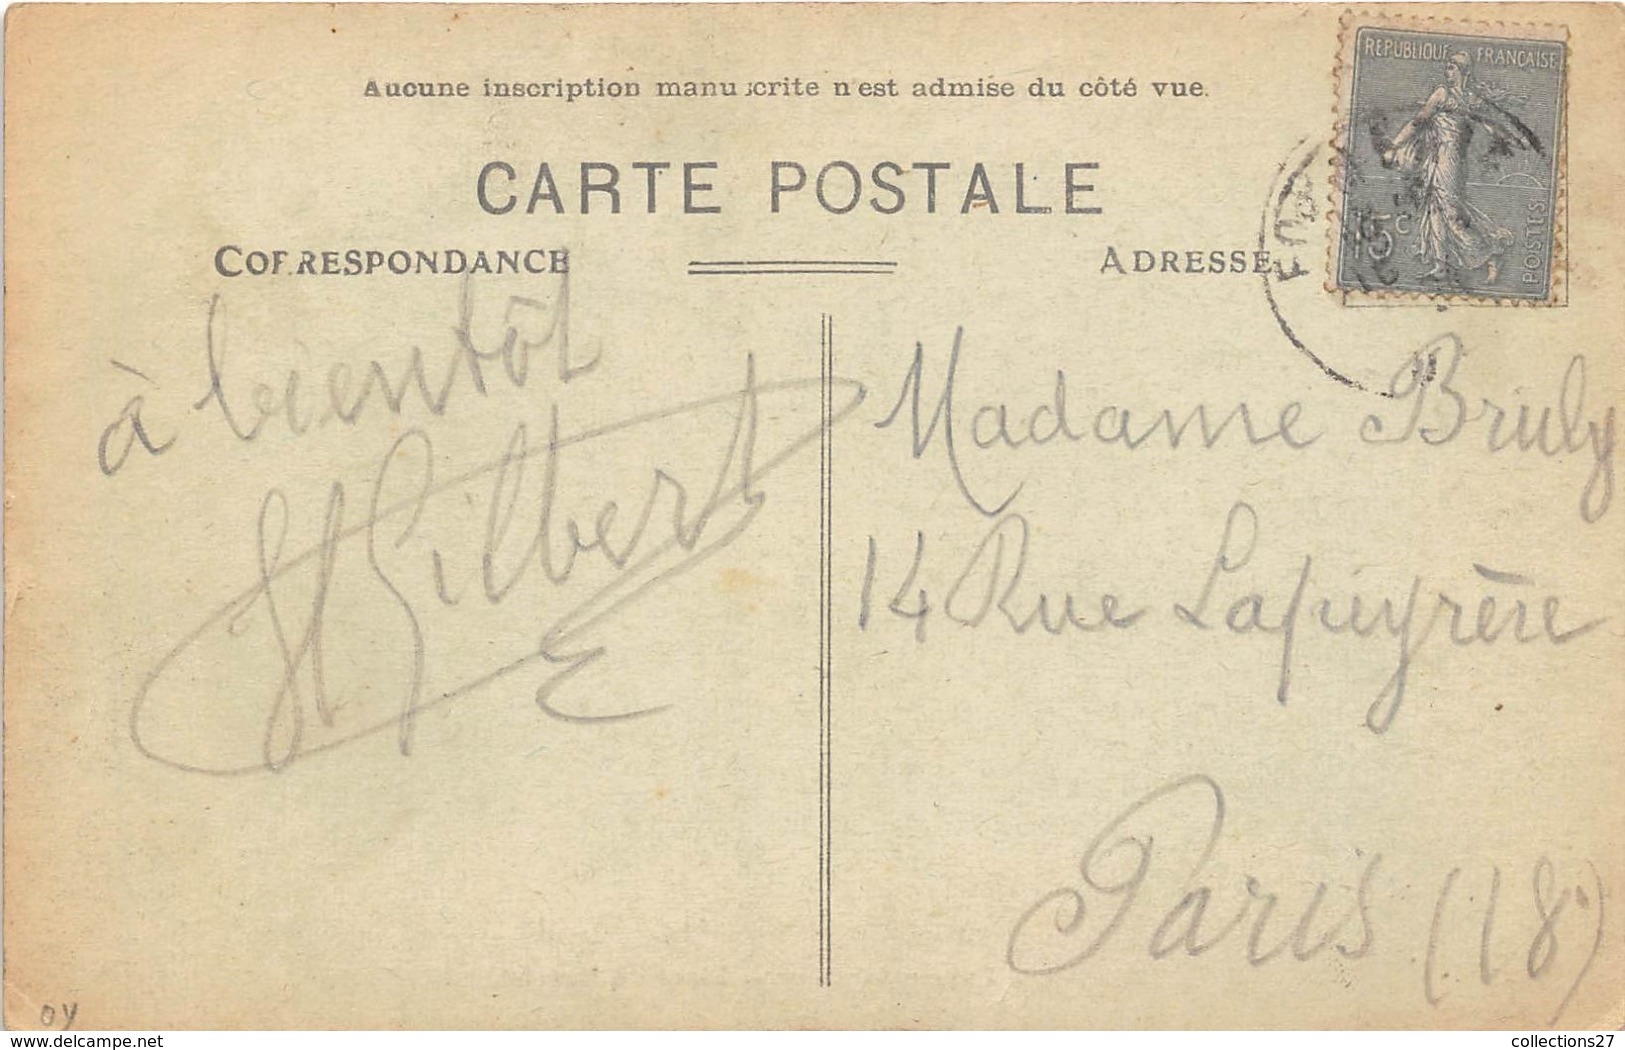 Aucune inscription manuscrite n'est admise du côté vue.
CARTE POSTALE
CORRESPONDANCE
ADRESSE
REPUBLIQUE FRANÇAISE
15c
POSTES
à bientôt
Gilbert
Madame Bruly
14 Rue Lapeyrère
Paris (18)
04
www.delcampe.net
collections27